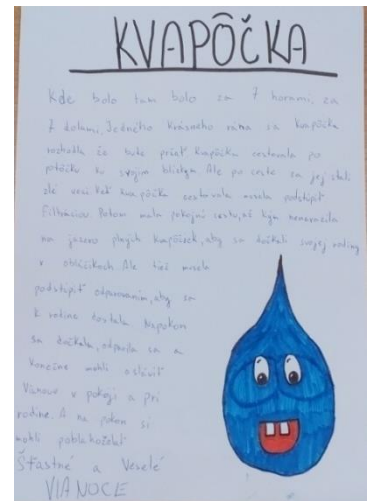 KVAPÔČKA
Kde bolo tam bolo za 7 horami, za
7 dolami. Jedného krásneho rána sa kvapôčka
rozhodla že bude Kvapôčka cestovala po
potôčku ku svojim blízkym. Ale po ceste sa jej stali
zlé veci keď kvapôčka cestovala musela podstúpiť
filtráciou. Potom mala pokojnú cestu, až kým nenarazila
na jazero plných kvapôčiek, aby sa dočkali svojej rodiny
v obláčikoch. Ale tiež musela
podstúpiť odparovaním, aby sa
k rodine dostala. Napokon
sa dočkala, odparila sa a
konečne mohli osláviť
Vianoce v pokoji a pri
rodine. A na pokon si
mohli poblahoželať
Šťastné a Veselé
VIANOCE